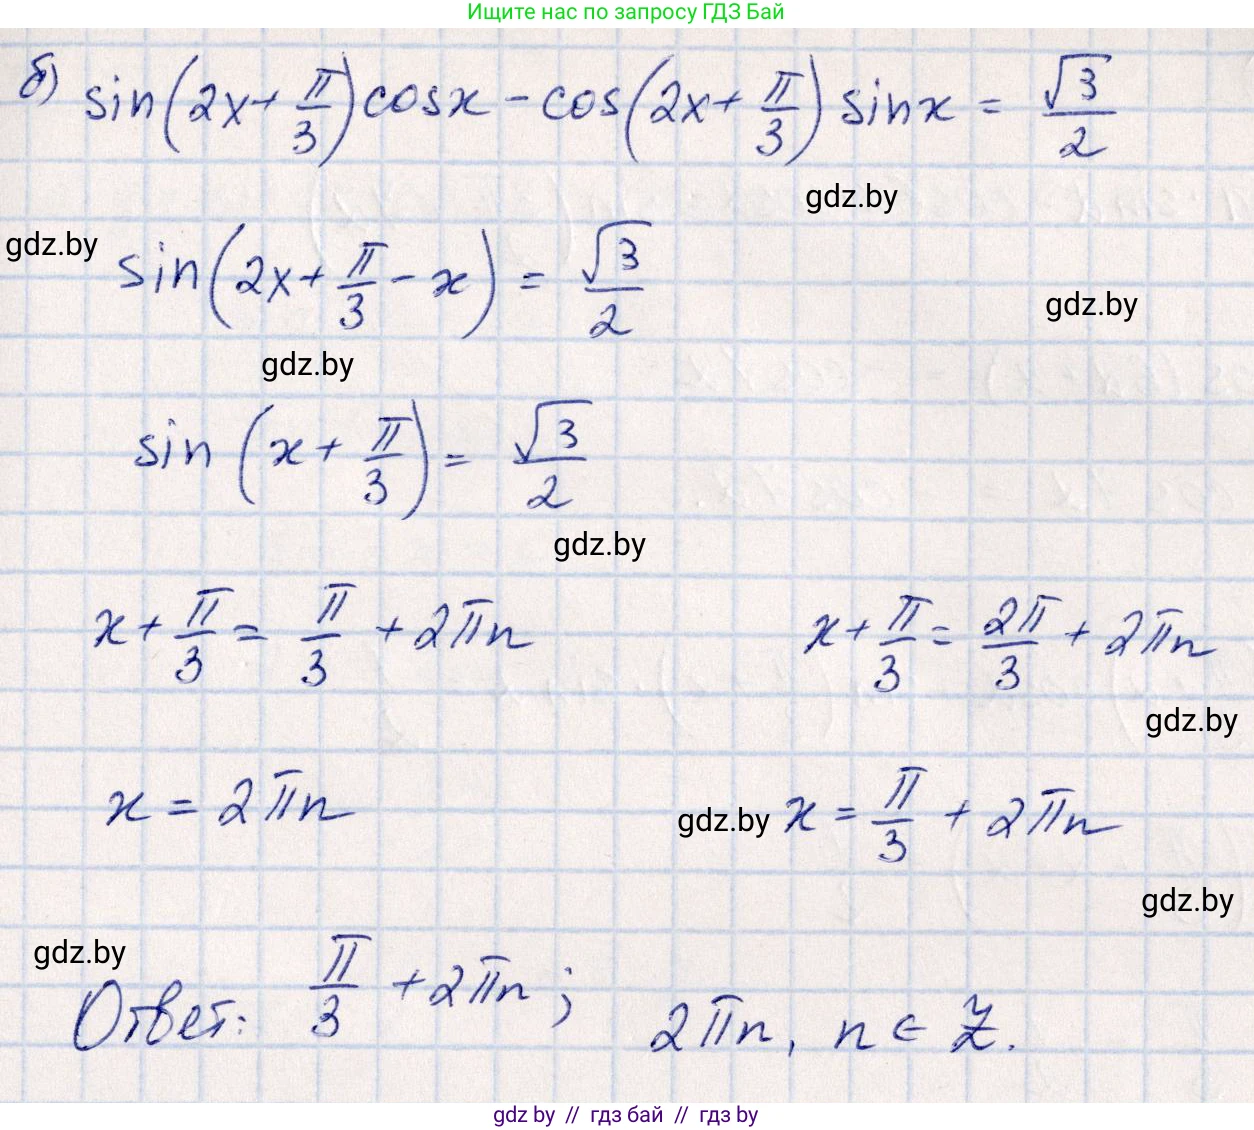 Ищите нас по запросу ГДЗ Бай
б) sin(2x+π/3)cosx - cos(2x+π/3) sinx = √3/2
gdz.by
gdz.by
sin(2x+π/3-x) = √3/2
gdz.by
gdz.by
sin (x+π/3) = √3/2
gdz.by
x+π/3 = π/3 + 2πn x+π/3 = 2π/3 + 2πn
gdz.by
x = 2πn gdz.by x = π/3 + 2πn
gdz.by
gdz.by
Ответ: π/3 + 2πn; 2πn, n ∈ Z.
gdz by // гдз бай // гдз by